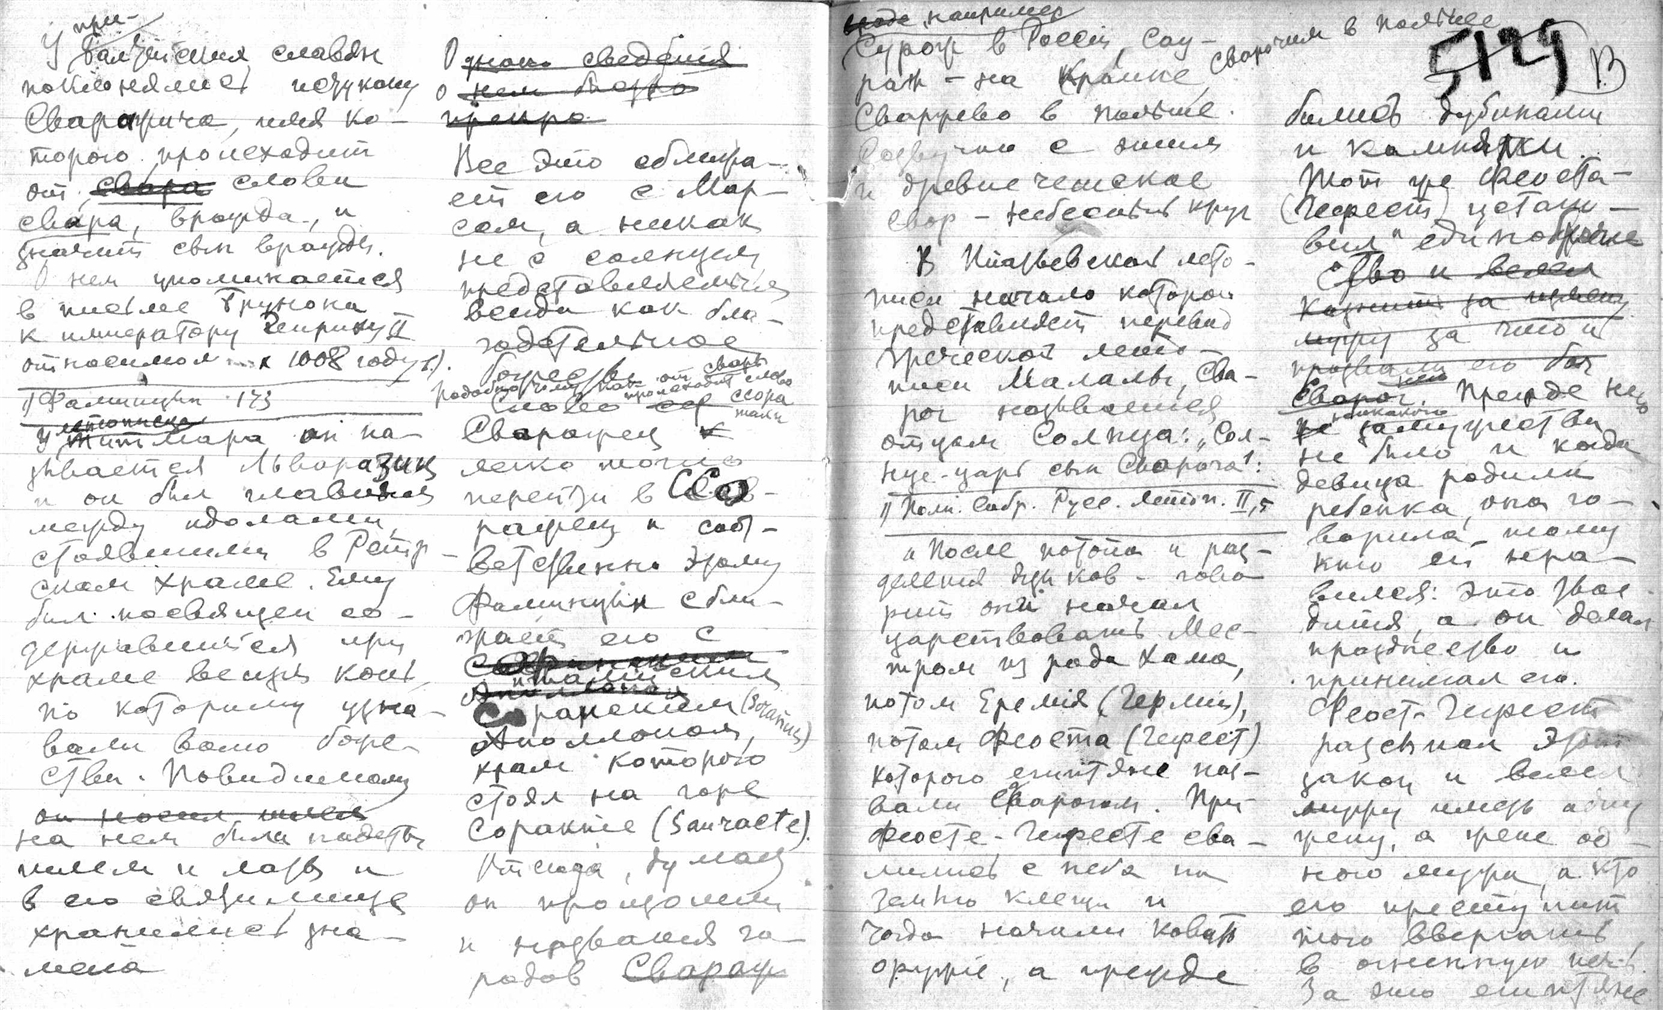 У при-
балтийския славян
поклонялись идукому
Сварожича, имя ко-
торого происходит
от свара словеи
свара, вражда, и
значит сын вражды.
О нем упоминается
в письме Брунона
к императору Генриху II
относимом к 1008 году 1).
1) Фаминцын 173
У летописца
Титмара он на-
зывается Льваразик
и он был главным
между идолами,
стоявшими в Ретр-
ском храме. Ему
был посвящен со-
державшийся при
храме вещий конь,
по которому узна-
вали волю боже-
ства. Повидимому
он носил шлем
на нем были надеты
шлем и латы и
в его святилище
хранились зна-
мена
Одного сведения
о нем
Все это сближа-
ет его с Мар-
сом, а никак
не с солнцем
представляемым
всегда как бла-
годетельное
божество.
подобно тому как от свары
происходит слово ссора
Слово
Сварожец
легко могло
перейти в Сов-
ражец и соот-
ветственно этому
Фаминцын сбли-
жает его с
италийским
Аполлоном
Соранским (Soranus)
Аполлоном,
храм которого
стоял на горе
Соракте (Sauracte).
Отсюда, думает
он произошли
и названия го-
родов Сварож
рода, например
Сурож в России, Сау-
раж - на Крайне, сварочин в польше
Сваржево в Польше.
Созвучно с этим
и древне чешское
свор - небесный круг
В Ипатьевской лето-
писи начало которой
представляет перевод
Греческой лето-
писи Малалы, Сва-
рог называется
отцом Солнца: "Сол-
нце-царь сын Сварога 1):
1) Полн. Собр. Русс. Летоп. II, 5
"После потопа и раз-
деления языков - гово-
рит он - начал
царствовать Мес-
тром из рода Хама,
потом Еремия (Гермий),
потом Феоста (Гефест)
которого египтяне наз-
вали Сварогом. При
Феосте-Гефесте сва-
лились с неба на
землю клещи и
тогда начали ковать
оружие, а прежде
5129
В
бились дубинами
и камнями.
Тот же Феоста-
(Гефест) устано-
вил "единобраче
ство и велел
казнить за измену
мужу за что и
прозвали его бог
Сварог. Прежде него
никакого
не замужества
не было и когда
девица родила
ребенка, она го-
ворила тому
кто ей нра-
вился: это твое
дитя, а он делал
празднество и
принимал его.
Феост-Гефест
разсыпал этот
закон и велел
мужу иметь одну
жену, а жене од-
ного мужа, а кто
его преступит
того ввергать
в огненную печь.
За это египтяне